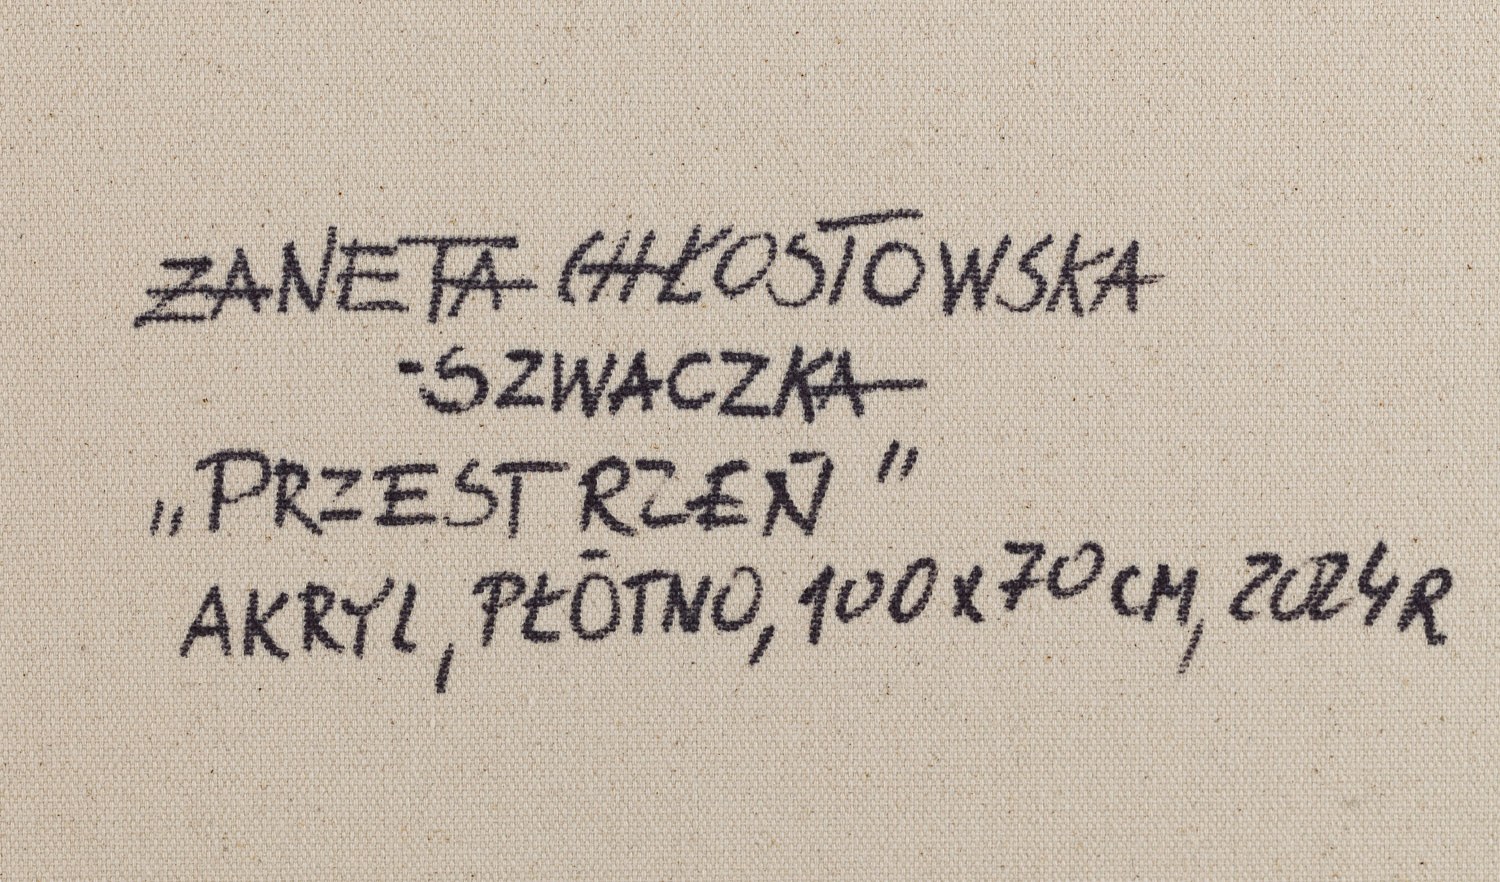 ŻANETA CHŁOSTOWSKA
-SZWACZKA
„PRZESTRZEŃ”
AKRYL, PŁÓTNO, 100x70cm, 2024R